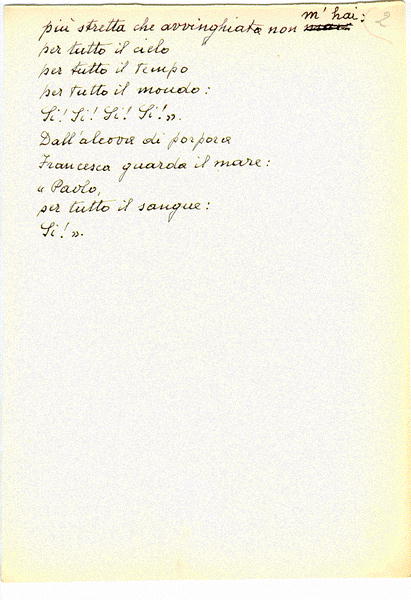 m'hai: 2
più stretta che avvinghiata non
per tutto il cielo
per tutto il tempo
per tutto il mondo:
Si! Si! Si! Si!».
Dall'alcova di porpora
Francesca guarda il mare:
« Paolo,
per tutto il sangue:
Si!».